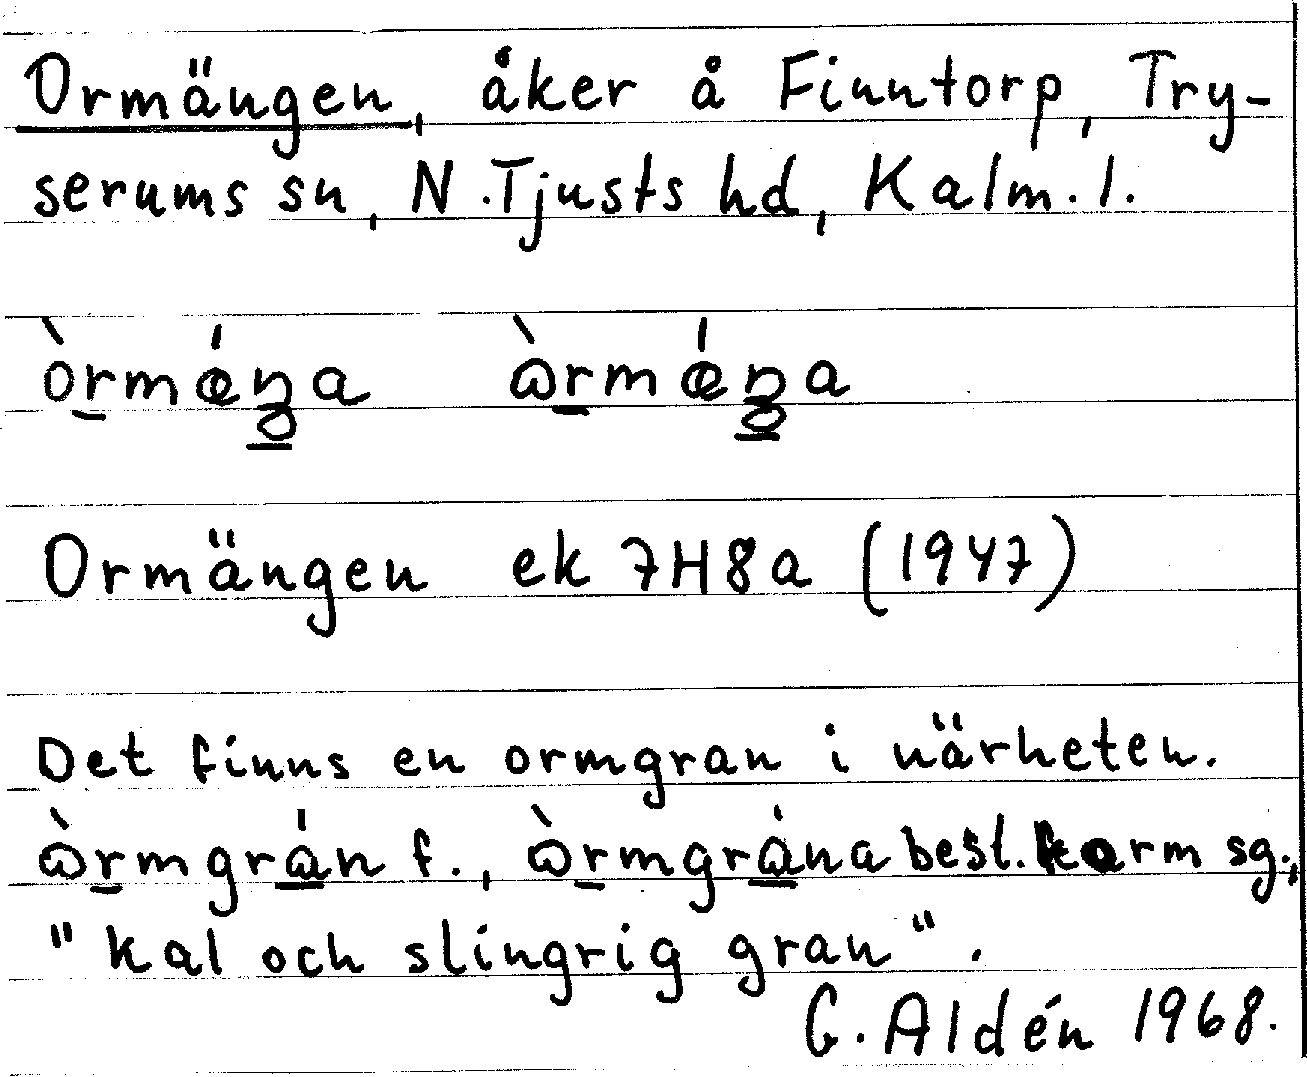 Ormängen, åker å Finntorp, Try-
serums sn, N.Tjusts hd, Kalm.l.
òrmǽŋa ὼrmǽŋa
Ormängen ek 7H8a (1947)
Det finns en ormgran i närheten.
ὼrmgrán f., ὼrmgrána best.form sg.,
"kal och slingrig gran".
G. Aldén 1968.